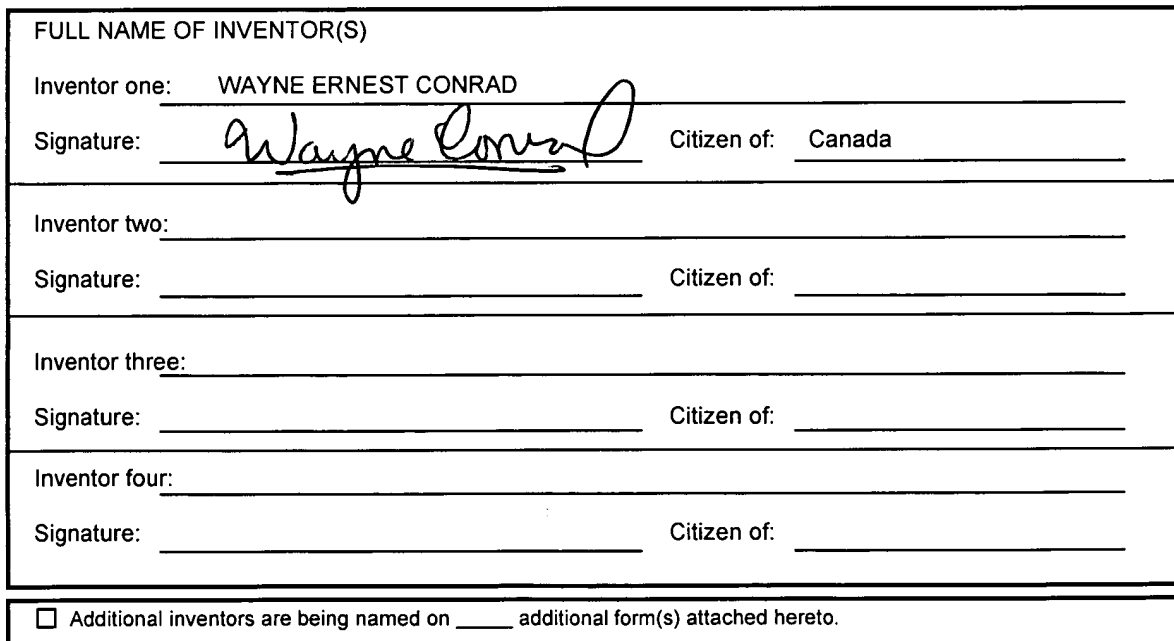 FULL NAME OF INVENTOR(S)
Inventor one: WAYNE ERNEST CONRAD
Signature: Wayne Conrad Citizen of: Canada
Inventor two:
Signature: Citizen of:
Inventor three:
Signature: Citizen of:
Inventor four:
Signature: Citizen of:
☐ Additional inventors are being named on _____ additional form(s) attached hereto.